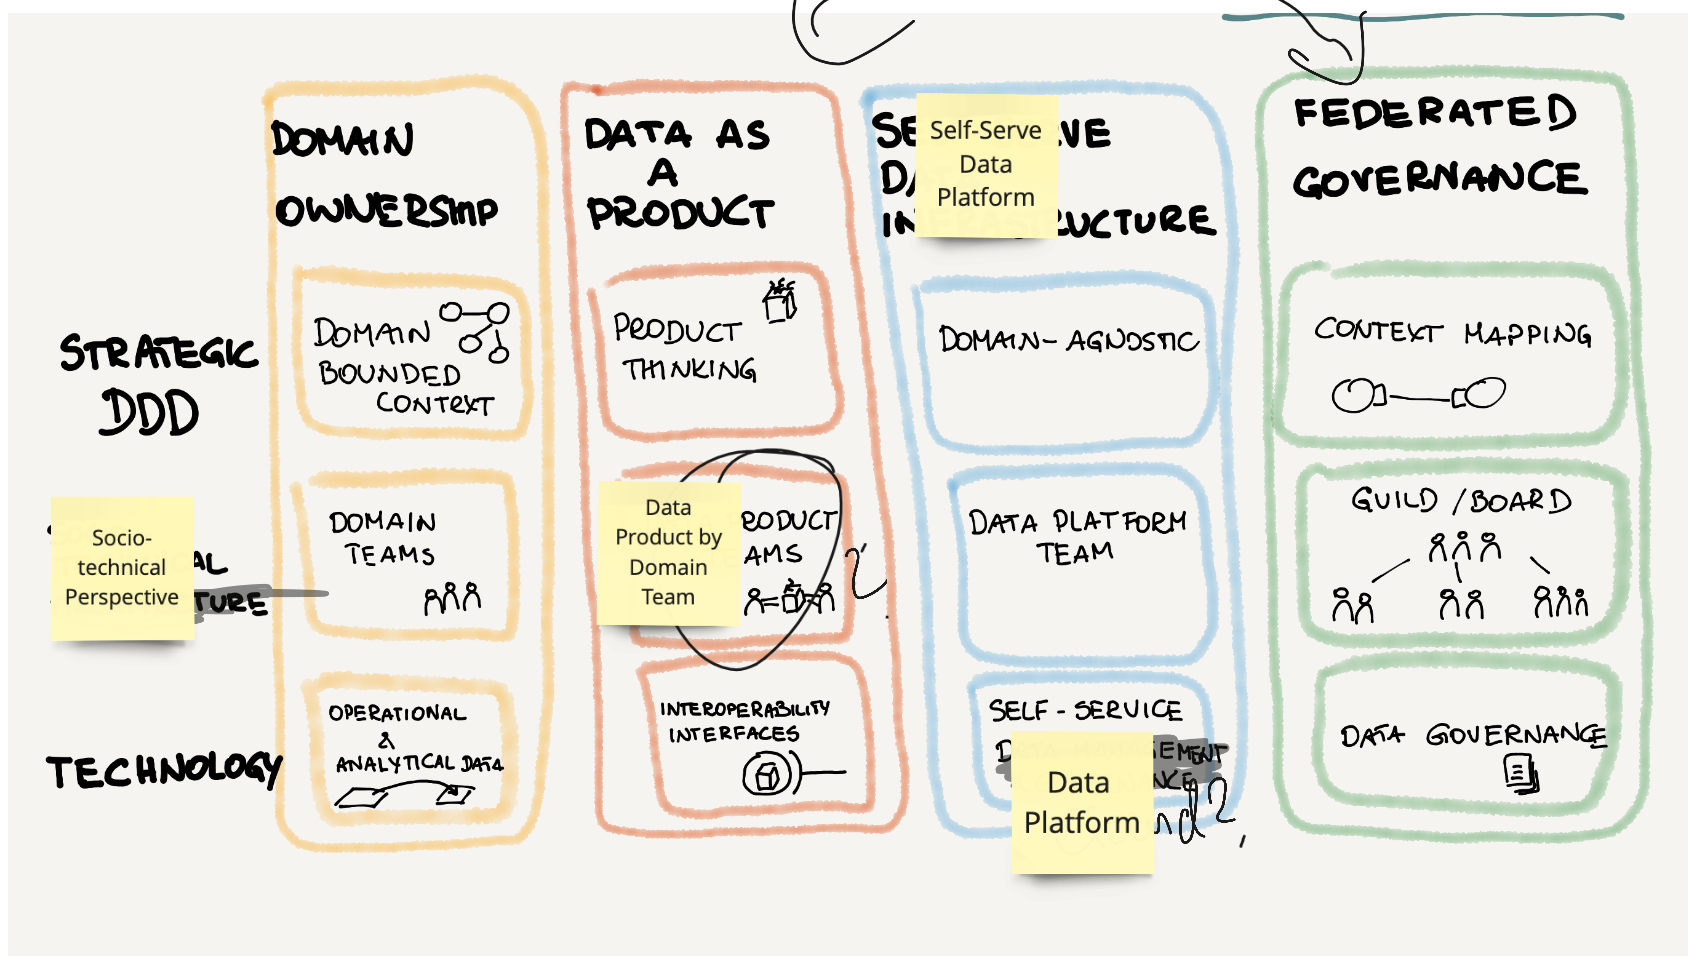 DOMAIN
OWNERSHIP
DATA AS
A
PRODUCT
Self-Serve
Data
Platform
FEDERATED
GOVERNANCE
STRATEGIC
DDD
DOMAIN
BOUNDED
CONTEXT
PRODUCT
THINKING
DOMAIN-AGNOSTIC
CONTEXT MAPPING
Socio-
technical
Perspective
DOMAIN
TEAMS
Data
Product by
Domain
Team
DATA PLATFORM
TEAM
GUILD / BOARD
TECHNOLOGY
OPERATIONAL
&
ANALYTICAL DATA
INTEROPERABILITY
INTERFACES
SELF-SERVICE
Data
Platform
DATA GOVERNANCE